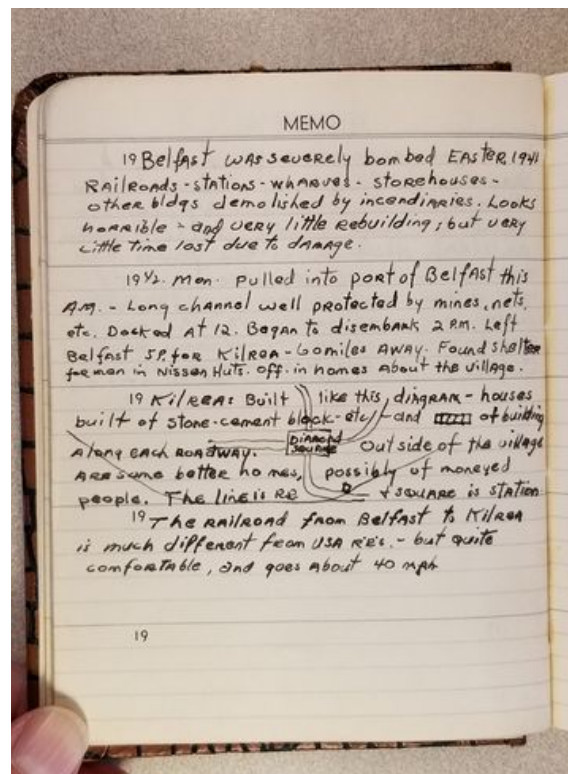 MEMO
19 Belfast was severely bombed Easter, 1941
Railroads - stations - wharves - storehouses -
other bldgs demolished by incendiaries. Looks
horrible - and very little rebuilding; but very
little time lost due to damage.
19 1/2. Mon. pulled into port of Belfast this
A.M. - Long channel well protected by mines, nets,
etc. Docked at 12. Began to disembark 2 P.M. Left
Belfast 5 P. for Kilrea - 60 miles away. Found shelter
for men in Nissen Huts. Off. in homes about the village.
19 Kilrea: Built like this diagram - houses
built of stone-cement block-etc/-and of building
along each roadway. Diamond Square Outside of the village
are some better homes, possibly of moneyed
people. The line is RR & square is station
19 The railroad from Belfast to Kilrea
is much different from USA RR's. - but quite
comfortable, and goes about 40 mph
19